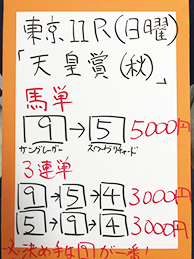 東京11R(日曜)
「天皇賞(秋)」
馬単
9→5 5000円
サングレーザー スワーヴリチャード
3連単
9→5→4 3000円
5→9→4 3000円
※決め手は⑨が一番!